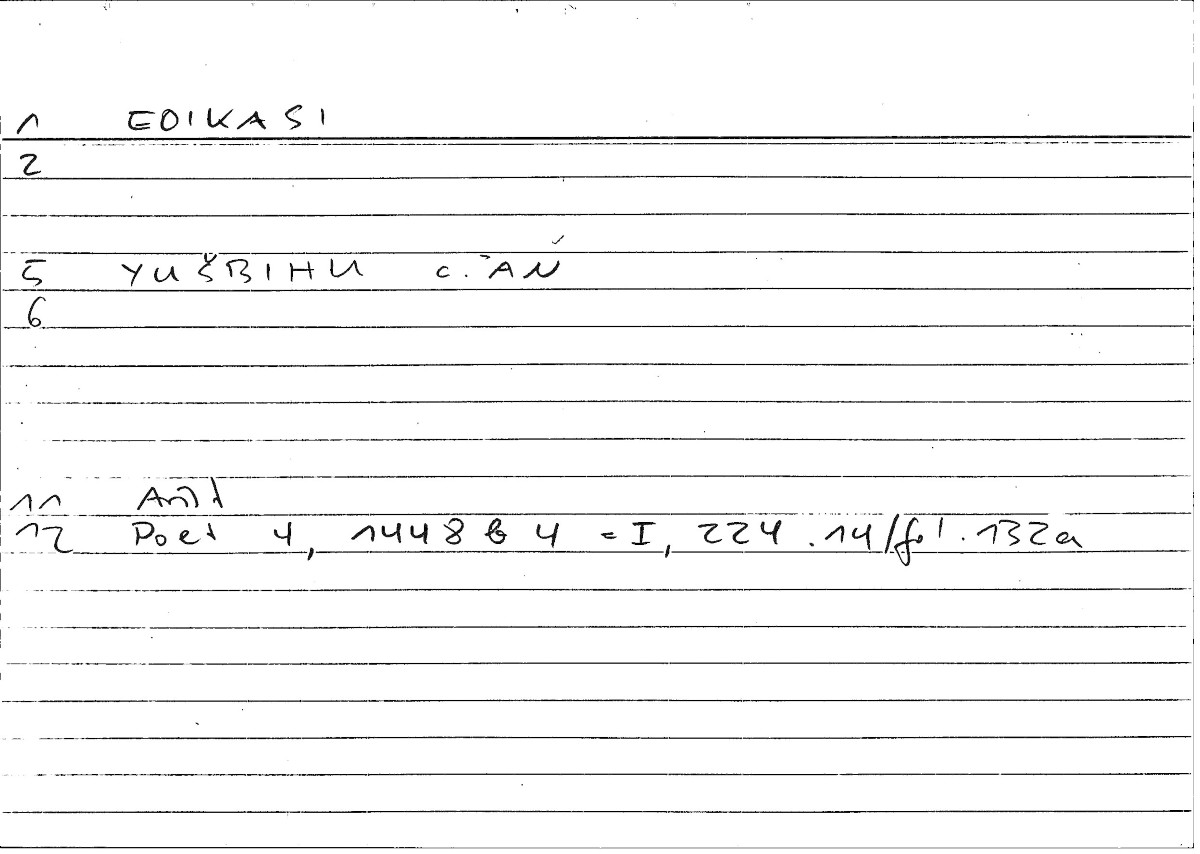 1 EOIKASI
2
5 YUŠBIHU c. ʾAN
6
11 Arist
12 Poet 4, 1448 b 4 = I, 224.14/fol.132a